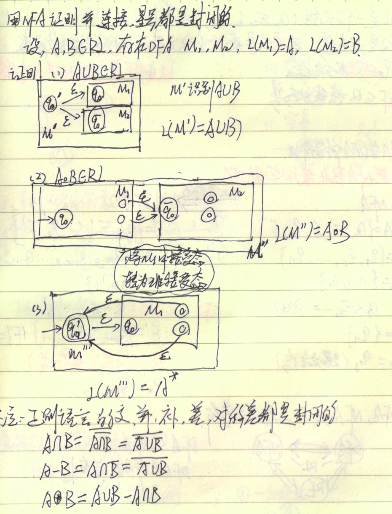 用NFA证明并、连接、星号都是封闭的
设, A,B∈RL, 存在DFA M₁, M₂, L(M₁)=A, L(M₂)=B.
证明 (1) A∪B∈RL
q₀' ε q₀ M₁
ε q₀ M₂
M'
M'识别A∪B
L(M')=A∪B
(2) A∘B∈RL
q₀ M₁ ε ε q₀ M₂
M''
L(M'')=A∘B
将M₁中接受态
转为非接受态
(3)
ε
q₀' ε q₀ M₁
M''' ε
L(M''')=A*
注:正则语言的交、并、补、差、对称差都是封闭的
A∩B = A∩B = A∪B
A-B = A∩B = A∪B
A⊕B = A∪B - A∩B